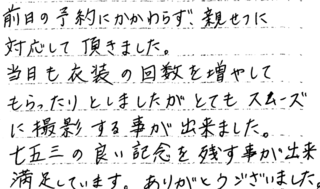 前日の予約にかかわらず 親せつに
対応して 頂きました。
当日も 衣装 の 回数を 増やして
もらったり としましたが とても スムーズ
に 撮影 する 事が 出来ました。
七五三 の 良い 記念 を 残す 事が 出来
満足しています。ありがとうございました。